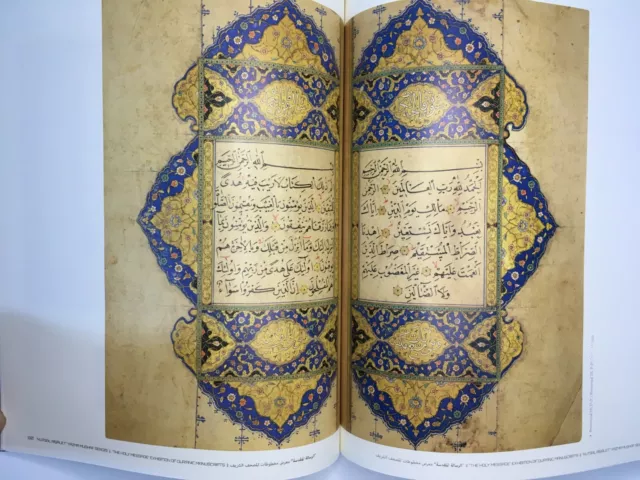 بسم الله الرحمن الرحيم
الحمد لله رب العالمين الرحمن
الرحيم ملك يوم الدين اياك
نعبد واياك نستعين اهدنا
الصراط المستقيم صراط الذين
انعمت عليهم غير المغضوب عليهم
ولا الضالين
بسم الله الرحمن الرحيم
الم ذلك الكتاب لا ريب فيه هدى
للمتقين الذين يؤمنون بالغيب ويقيمون الصلوة
ومما رزقناهم ينفقون والذين يؤمنون بما
انزل اليك وما انزل من قبلك وبالاخرة هم
يوقنون اولئك على هدى من ربهم واولئك
هم المفلحون ان الذين كفروا سواء
"الرسالة المقدسة" معرض مخطوطات المصحف الشريف "THE HOLY MESSAGE" EXHIBITION OF QURANIC MANUSCRIPTS
"THE HOLY MESSAGE" EXHIBITION OF QURANIC MANUSCRIPTS "الرسالة المقدسة" معرض مخطوطات المصحف الشريف